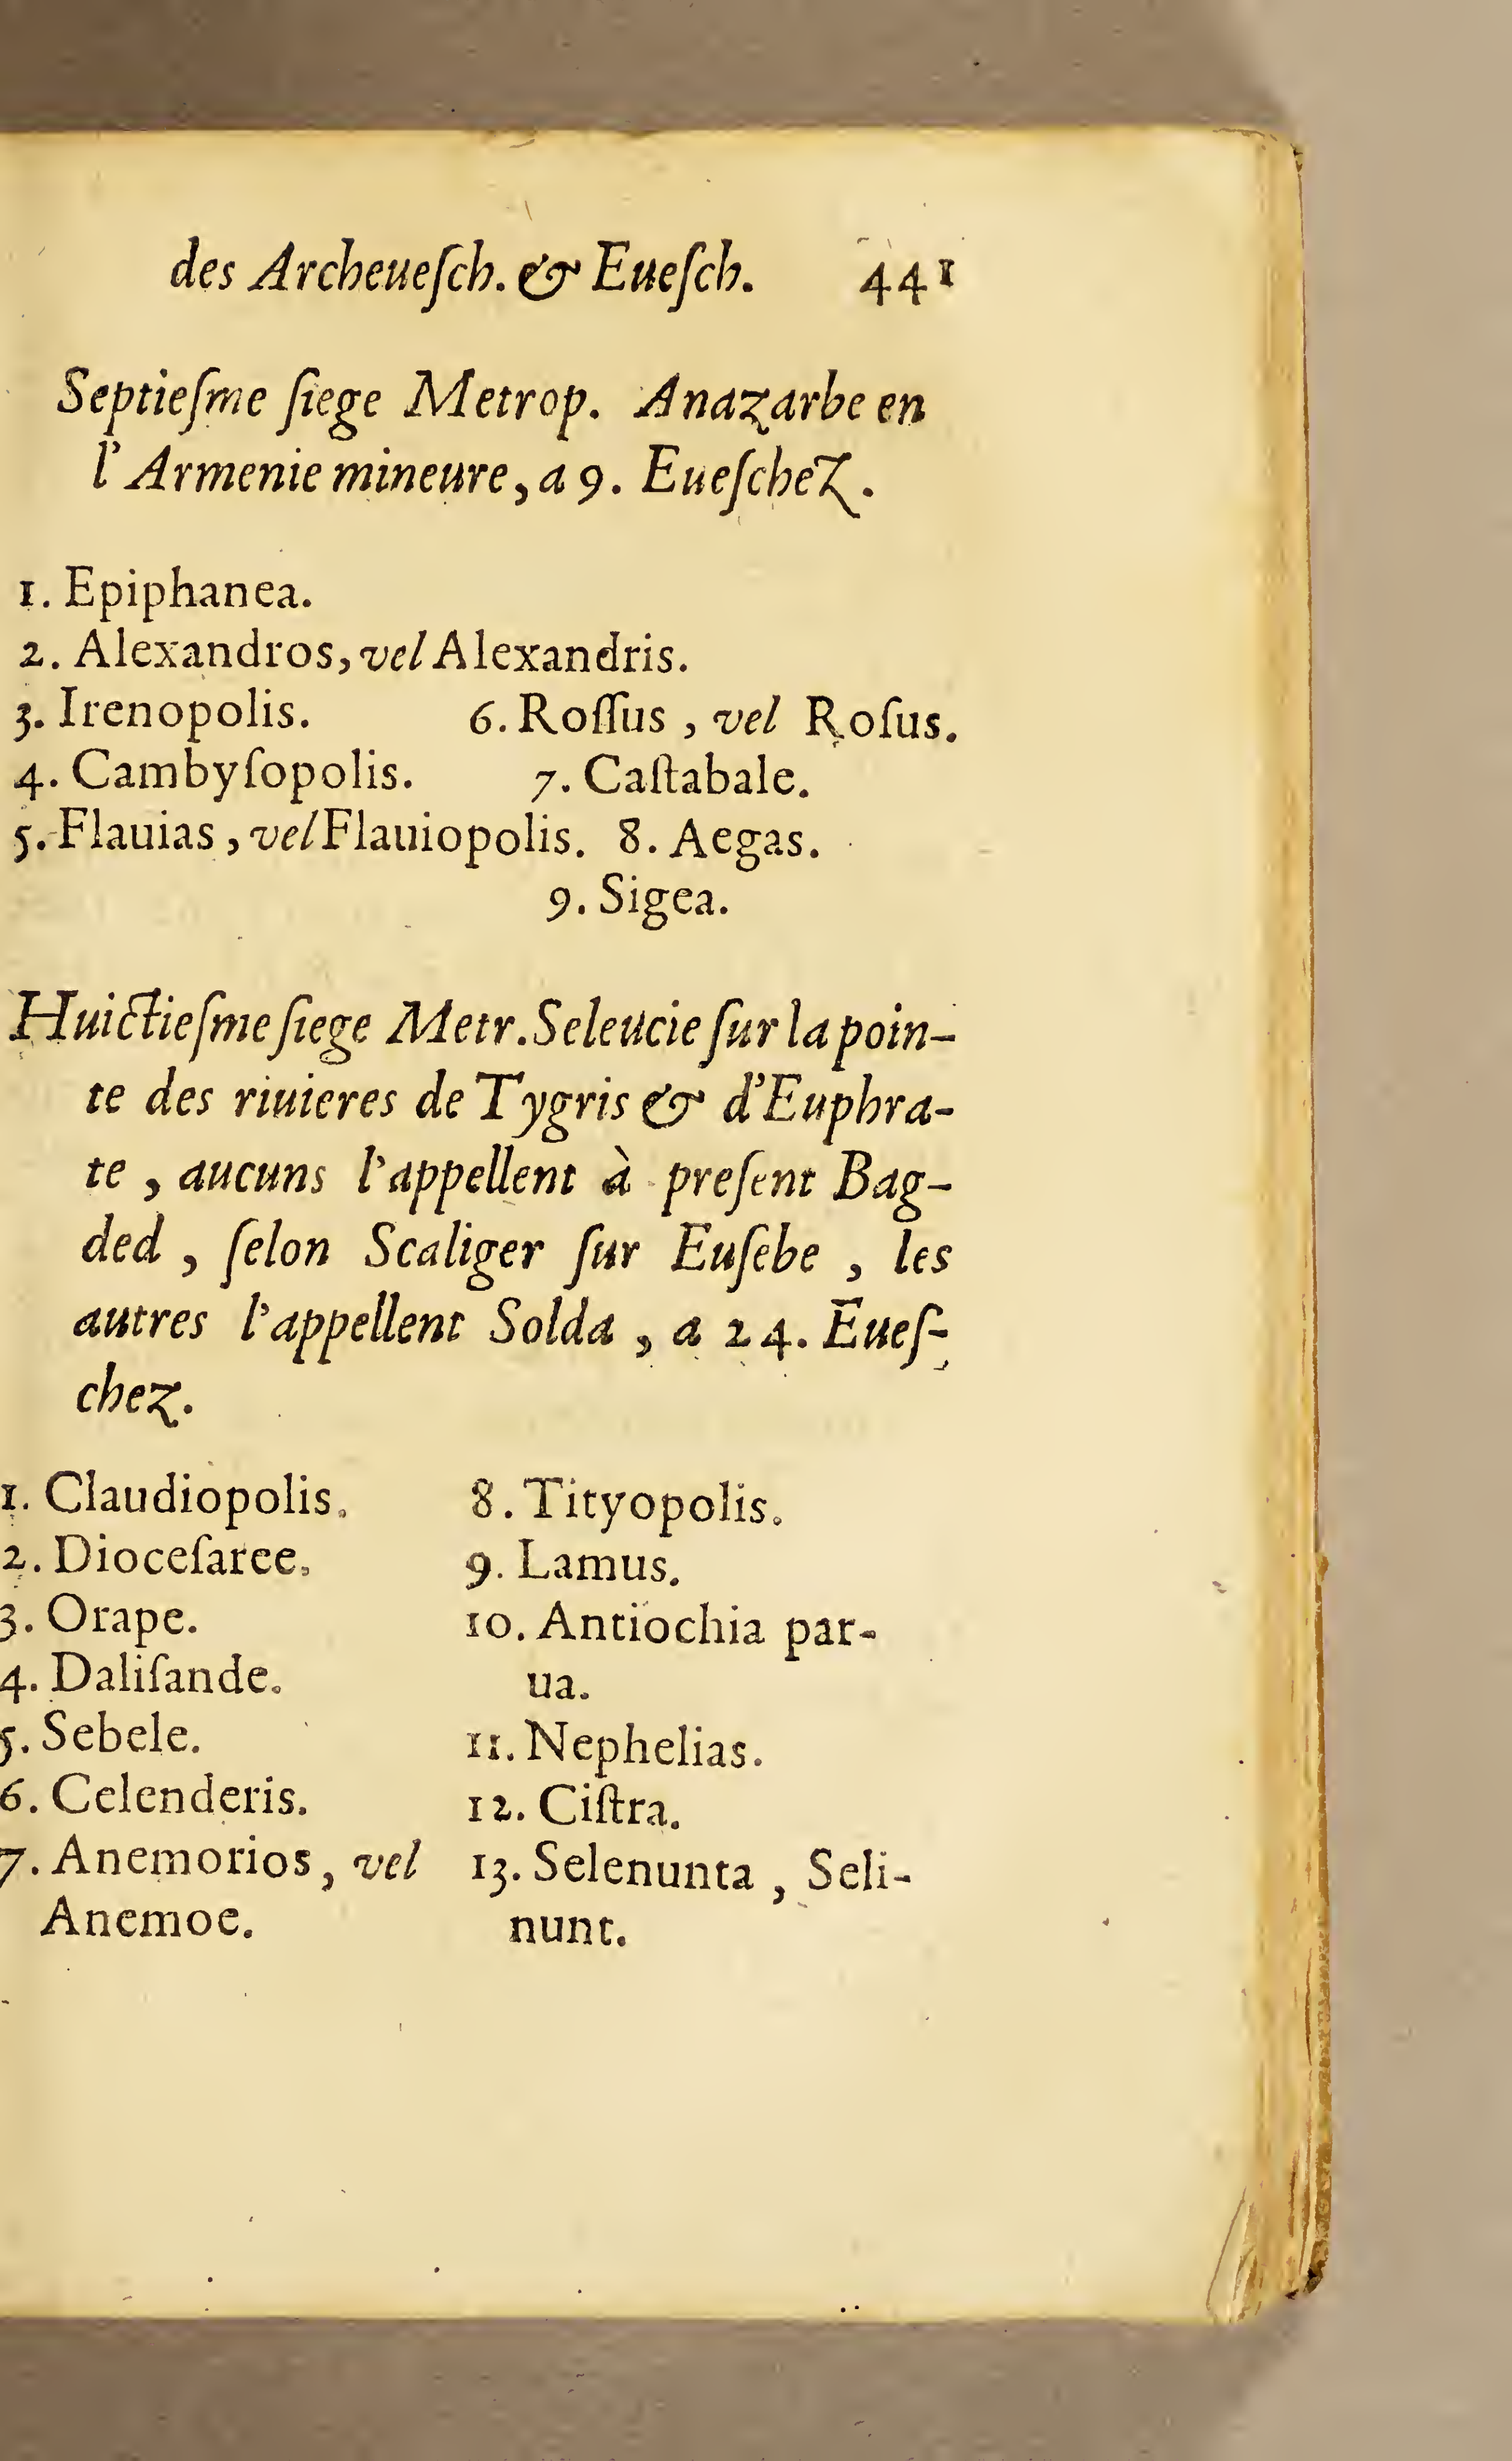 des Archeueſch. & Eueſch. 441
Septieſme ſiege Metrop. Anazarbe en
l'Armenie mineure, a 9. Eueſchez.
1. Epiphanea.
2. Alexandros, vel Alexandris.
3. Irenopolis.
4. Cambyſopolis.
5. Flauias, vel Flauiopolis.
6. Roſſus, vel Roſus.
7. Caſtabale.
8. Aegas.
9. Sigea.
Huictieſme ſiege Metr. Seleucie ſur la poin-
te des riuieres de Tygris & d'Euphra-
te, aucuns l'appellent à preſent Bag-
ded, ſelon Scaliger ſur Euſebe, les
autres l'appellent Solda, a 24. Eueſ-
chez.
1. Claudiopolis.
2. Dioceſaree.
3. Orape.
4. Daliſande.
5. Sebele.
6. Celenderis.
7. Anemorios, vel
Anemoe.
8. Tityopolis.
9. Lamus.
10. Antiochia par-
ua.
11. Nephelias.
12. Ciſtra.
13. Selenunta, Seli-
nunt.